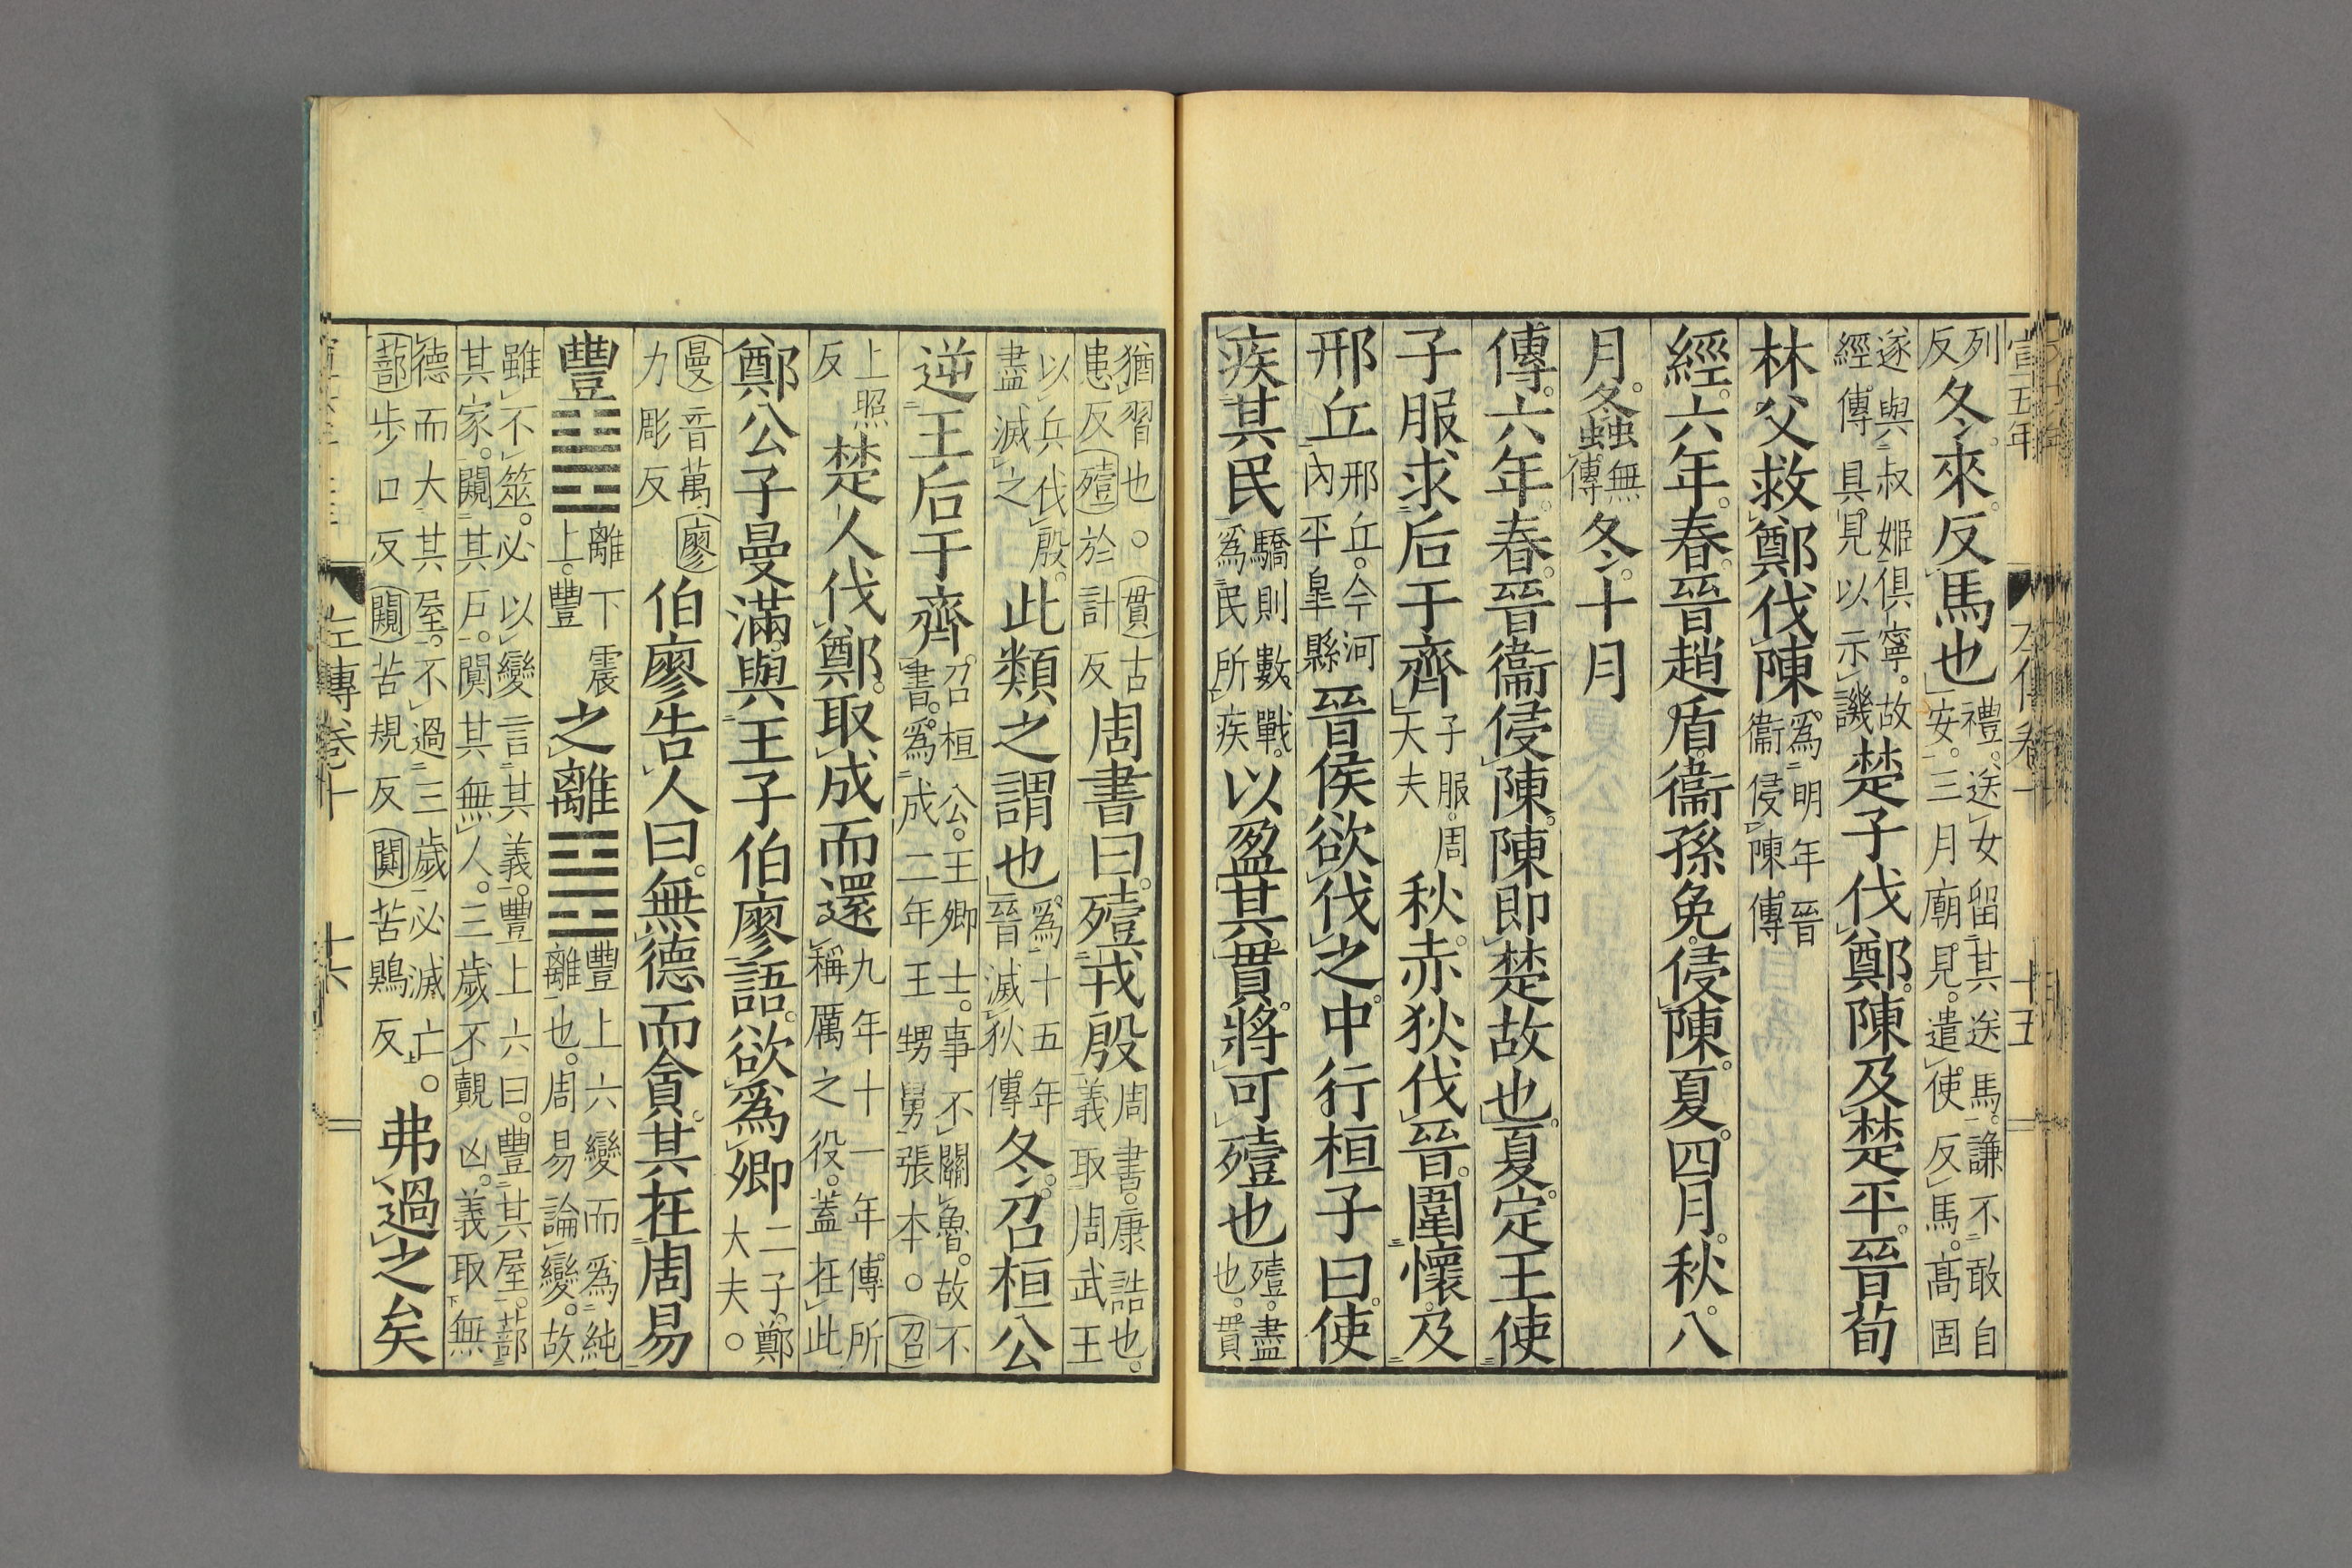 宣五年
十五
列反冬來反馬也禮送女留其送馬謙不敢自安三月廟見遣使反馬髙固
遂與叔姬俱寧故經傳具見以示譏楚子伐鄭陳及楚平晉荀
林父救鄭伐陳爲明年晉衞侵陳傳
經六年春晉趙盾衞孫免侵陳夏四月秋八
月冬螽無傳冬十月
傳六年春晉衞侵陳陳即楚故也夏定王使
子服求后于齊子服周大夫秋赤狄伐晉圍懷及
邢丘邢丘今河內平皐縣晉侯欲伐之中行桓子曰使
疾其民驕則數戰爲民所疾以盈其貫將可殪也殪盡也貫
猶習也○貫古患反殪於計反周書曰殪戎殷周書康誥也義取周武王
以兵伐殷盡滅之此類之謂也爲十五年晉滅狄傳冬召桓公
逆王后于齊召桓公王卿士事不關魯故不書爲成二年王甥舅張本○召
上照反楚人伐鄭取成而還九年十一年傳所稱厲之役蓋在此
鄭公子曼滿與王子伯廖語欲爲卿二子鄭大夫○
曼音萬廖力彫反伯廖告人曰無德而貪其在周易
豐䷶離下震上豐之離䷝豐上六變而爲純離也周易論變故
雖不筮必以變言其義豐上六曰豐其屋蔀其家闚其戶闃其無人三歲不覿凶義取無
德而大其屋不過三歲必滅亡○蔀步口反闚苦規反闃苦鶪反弗過之矣
左傳卷十
十六